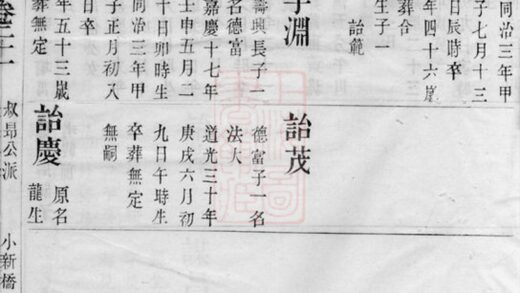 同治三年甲
子七月十三
日辰時卒
年四十六嵗
葬合
生子一
詒範
子淵
壽興長子一
名德富
嘉慶十七年
壬申五月二
十日卯時生
同治三年甲
子正月初入
日卒
年五十三嵗
葬無定
詒茂
德富子一名
法大
道光三十年
庚戌六月初
九日午時生
卒葬無定
無嗣
詒慶
原名
龍生
叔昂公派
小新橋